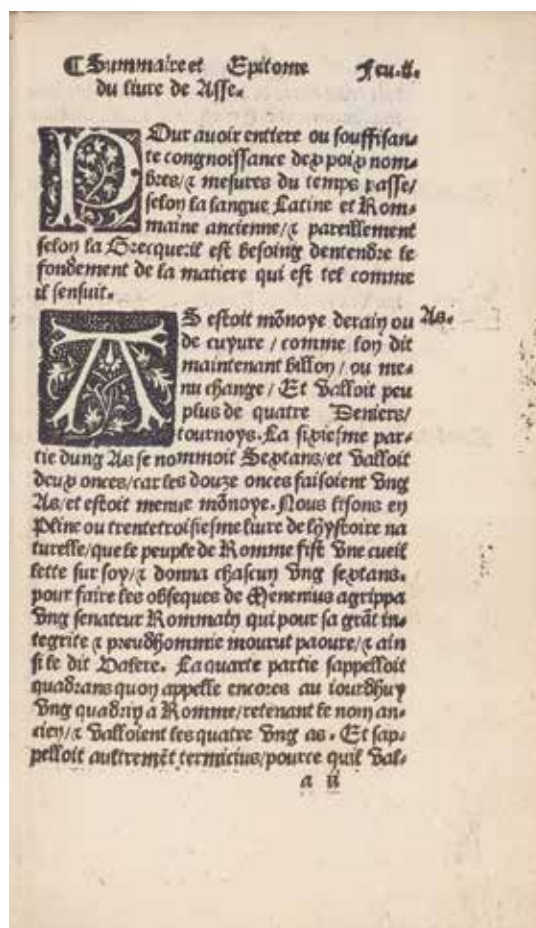 ¶ Summaire et Epitome Feu.ii.
du liure de Asse.
POur auoir entiere ou souffisan-
te congnoissance des pois nom-
bres/⁊ mesures du temps passe/
selon la langue Latine et Rom-
maine ancienne/⁊ pareillement
selon la Grecque:il est besoing dentendre le
fondement de la matiere qui est tel comme
il sensuit.
AS estoit mõnoye derain ou As.
de cuyure / comme lon dit
maintenant billon / ou me-
nu change / Et valloit peu
plus de quatre Deniers/
tournoys. La sixiesme par-
tie dung As se nommoit Sextans/et valloit
deux onces/car les douze onces faisoient vng
As/et estoit menue mõnoye. Nous lisons en
Pline ou trentetroisiesme liure de lhystoire na
turelle/que le peuple de Romme fist vne cueil
lette sur soy/⁊ donna chascun vng sextans.
pour faire les obseques de Menenius agrippa
vng senateur Rommain qui pour sa grãt in-
tegrite ⁊ preudhommie mourut paoure/⁊ ain
si le dit Valere. La quarte partie sappelloit
quadrans quon appelle encores au iourdhuy
vng quadrin a Romme/retenant le nom an-
cien/⁊ valloient les quatre vng as. Et sap-
pelloit aultremẽt termicius/pource quil val-
a ii